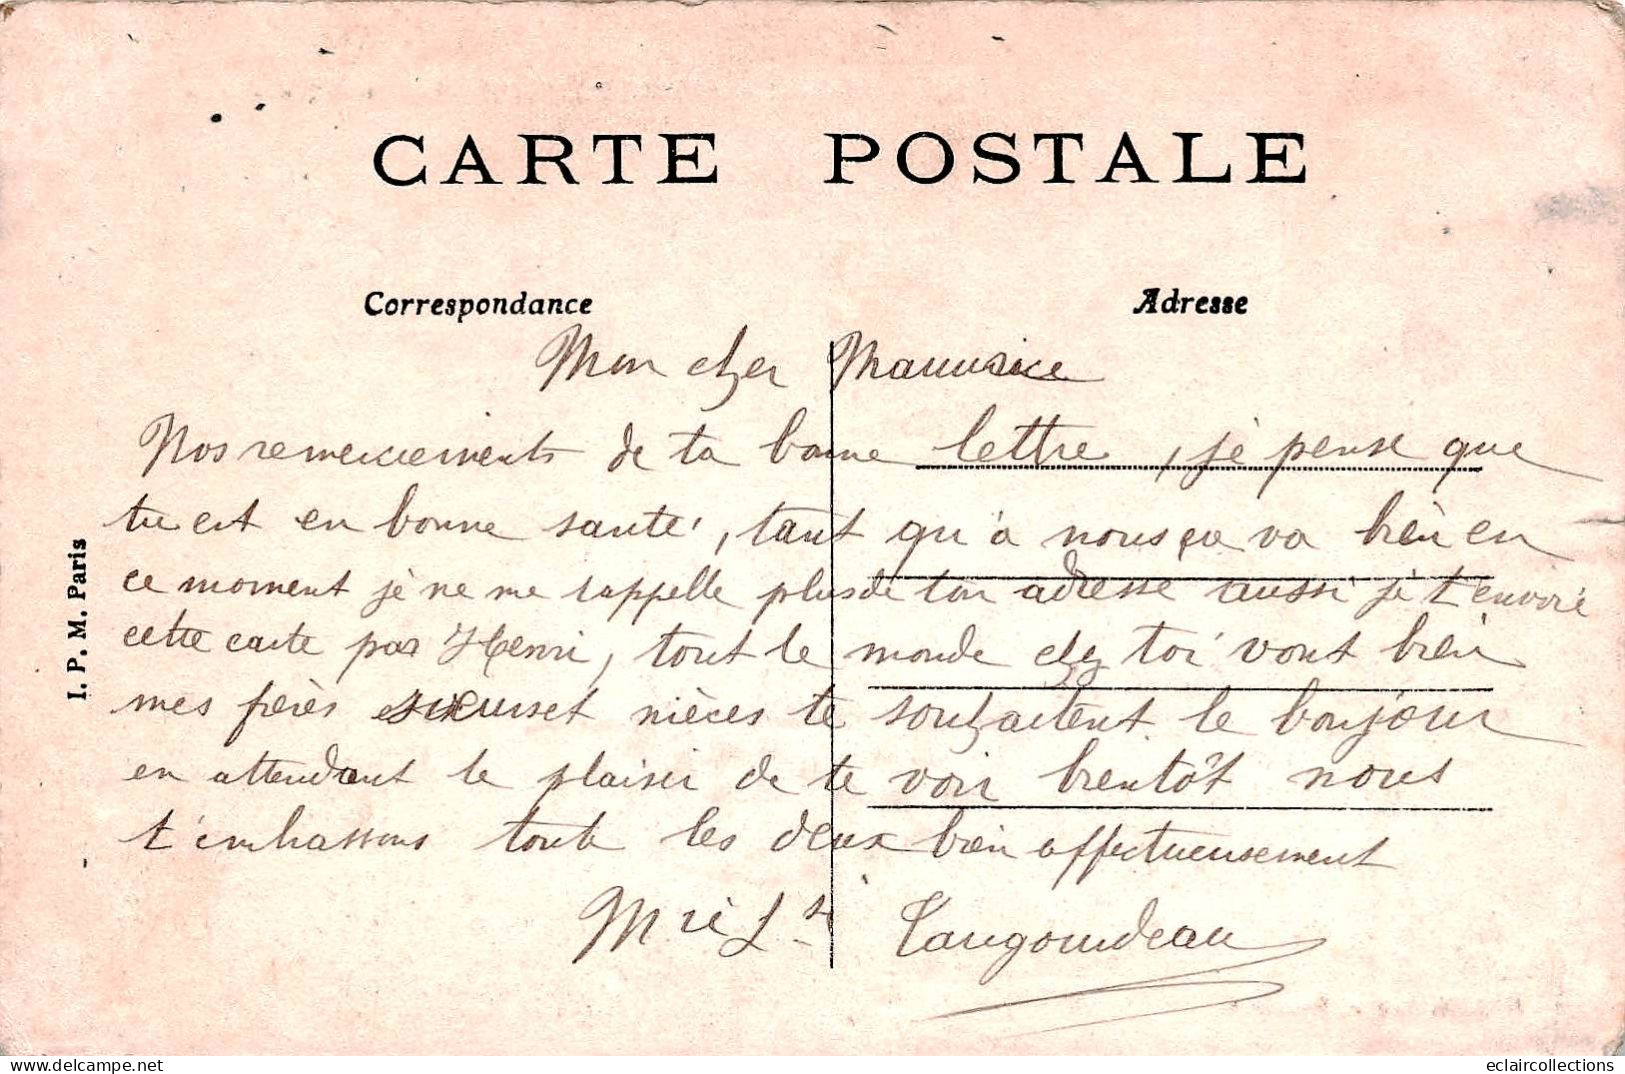 CARTE POSTALE
Correspondance
Adresse
Mon cher Maurice
Nos remerciements de ta bonne lettre, je pense que
tu est en bonne santé, tant qu'à nous ça va bien en
ce moment je ne me rappelle plus de ton adresse aussi je t'envoie
cette carte par Henri, tout le monde chz toi vont bien
mes frères sœurs et nièces te souhaitent le bonjour
en attendant le plaisir de te voir bientôt nous
t'embrassons toute les deux bien affectueusement
I. P. M. Paris
eclaircollections